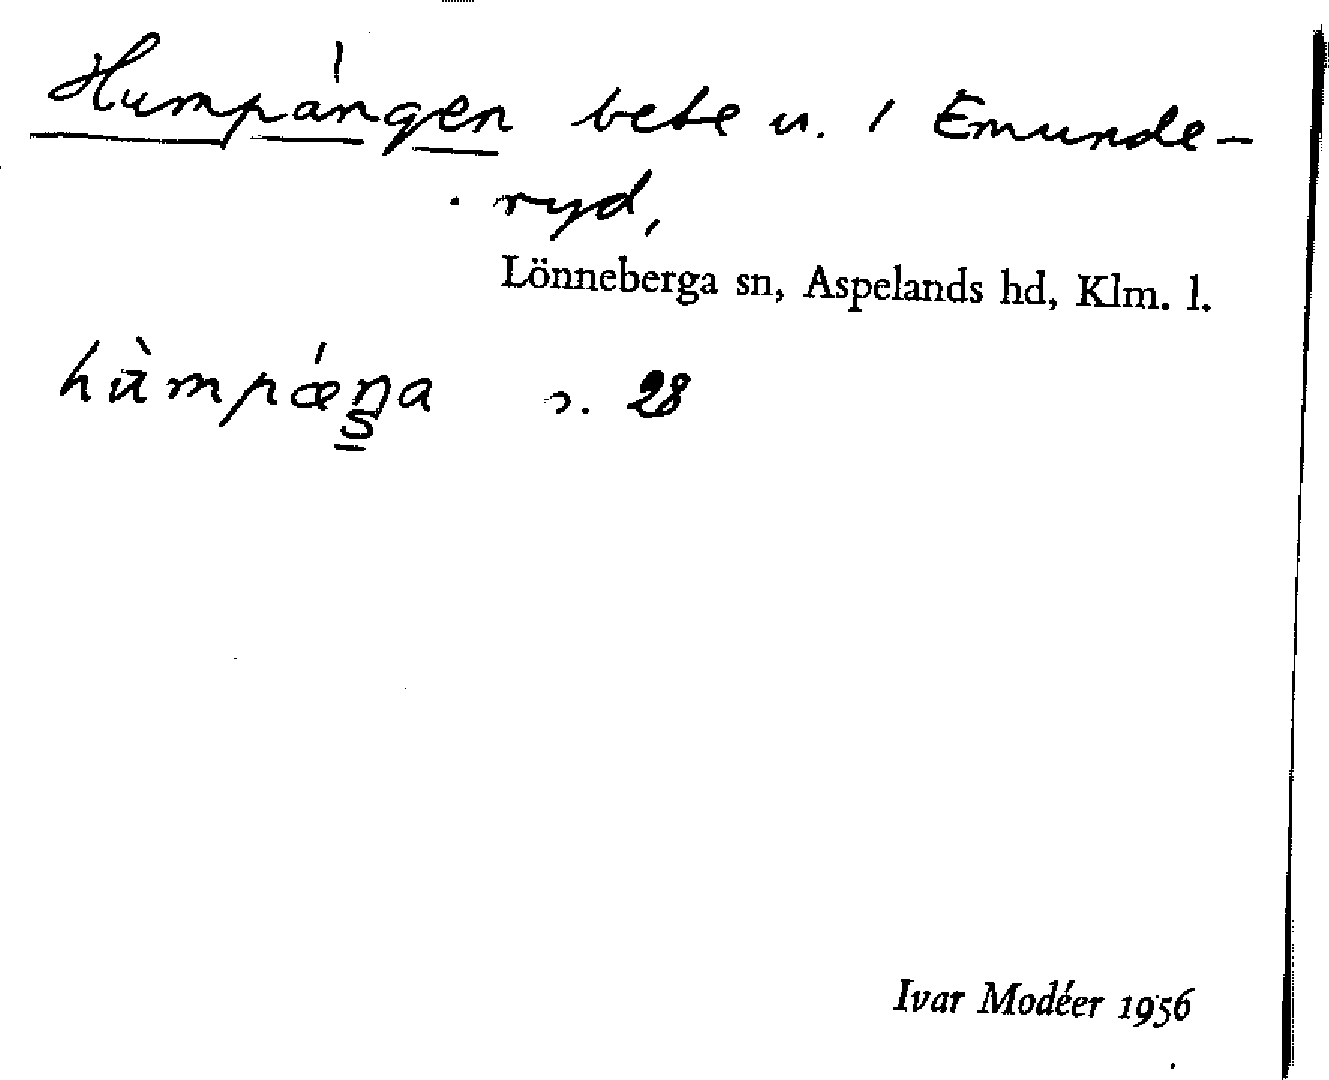 Humpängen bete u. / Emunde-
ryd,
Lönneberga sn, Aspelands hd, Klm. l.
hùmpǽŋa s. 28
Ivar Modéer 1956